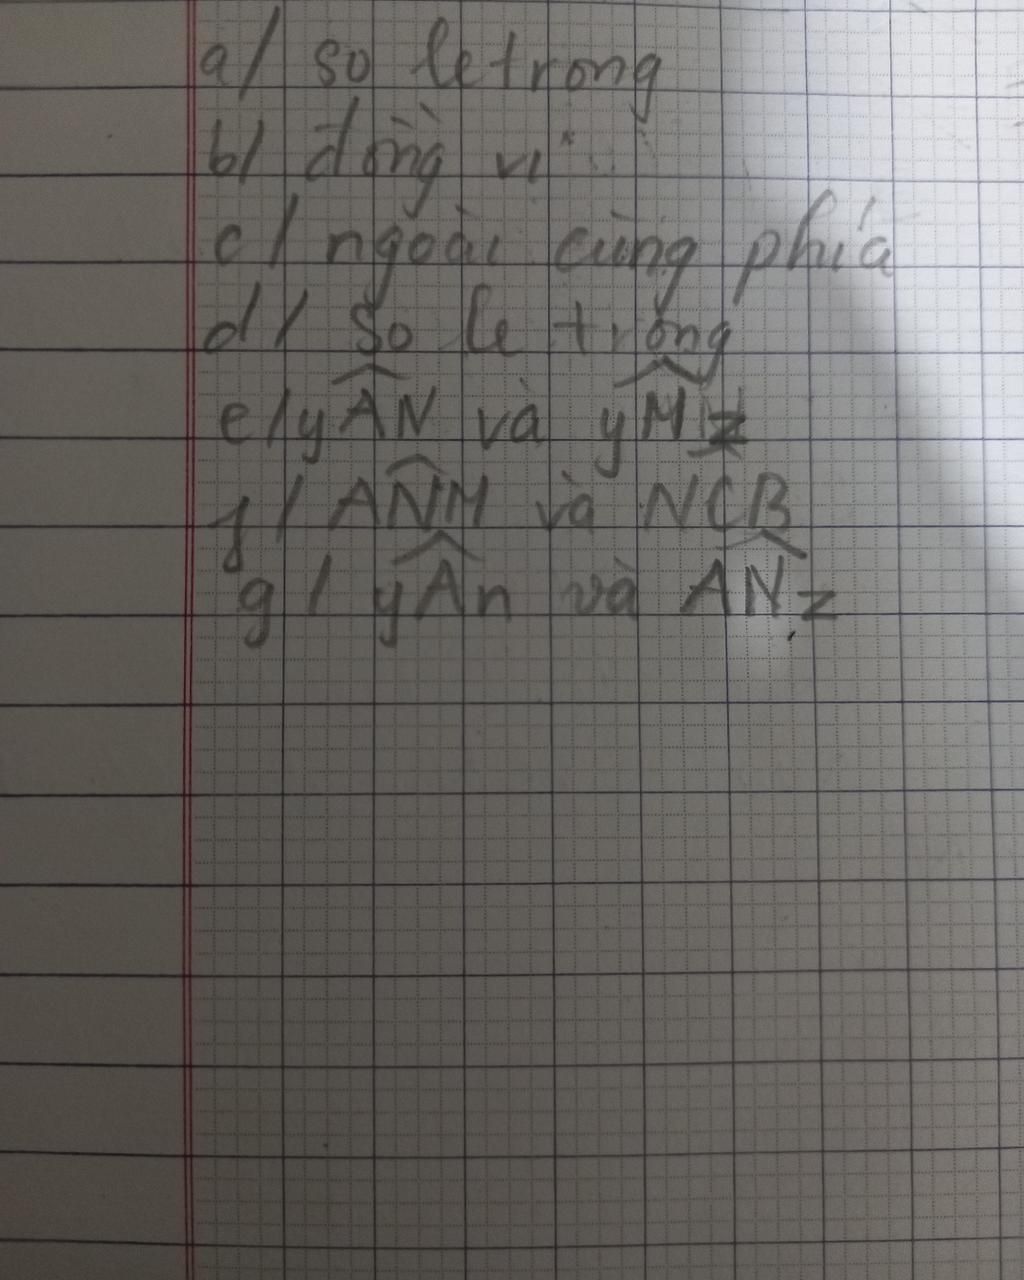 a/ so le trong
b/ đồng vị
c/ ngoài cùng phía
d/ so le trong
e/ yÂN và yMz
f/ ANM và NCB
g/ yÂn và ANz